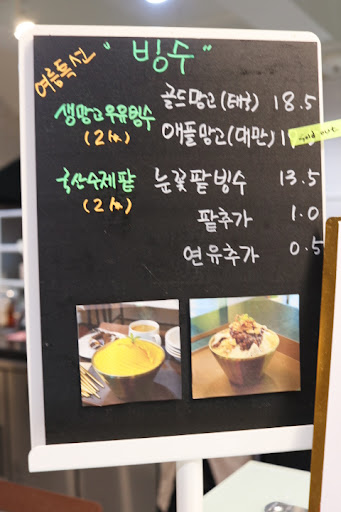 여름특선 " 빙수 "
생망고우유빙수 골드망고(태국) 18.5
(2인) 애플망고(대만) 1
sold out
국산수제팥 눈꽃팥빙수 13.5
(2인) 팥추가 1.0
연유추가 0.5